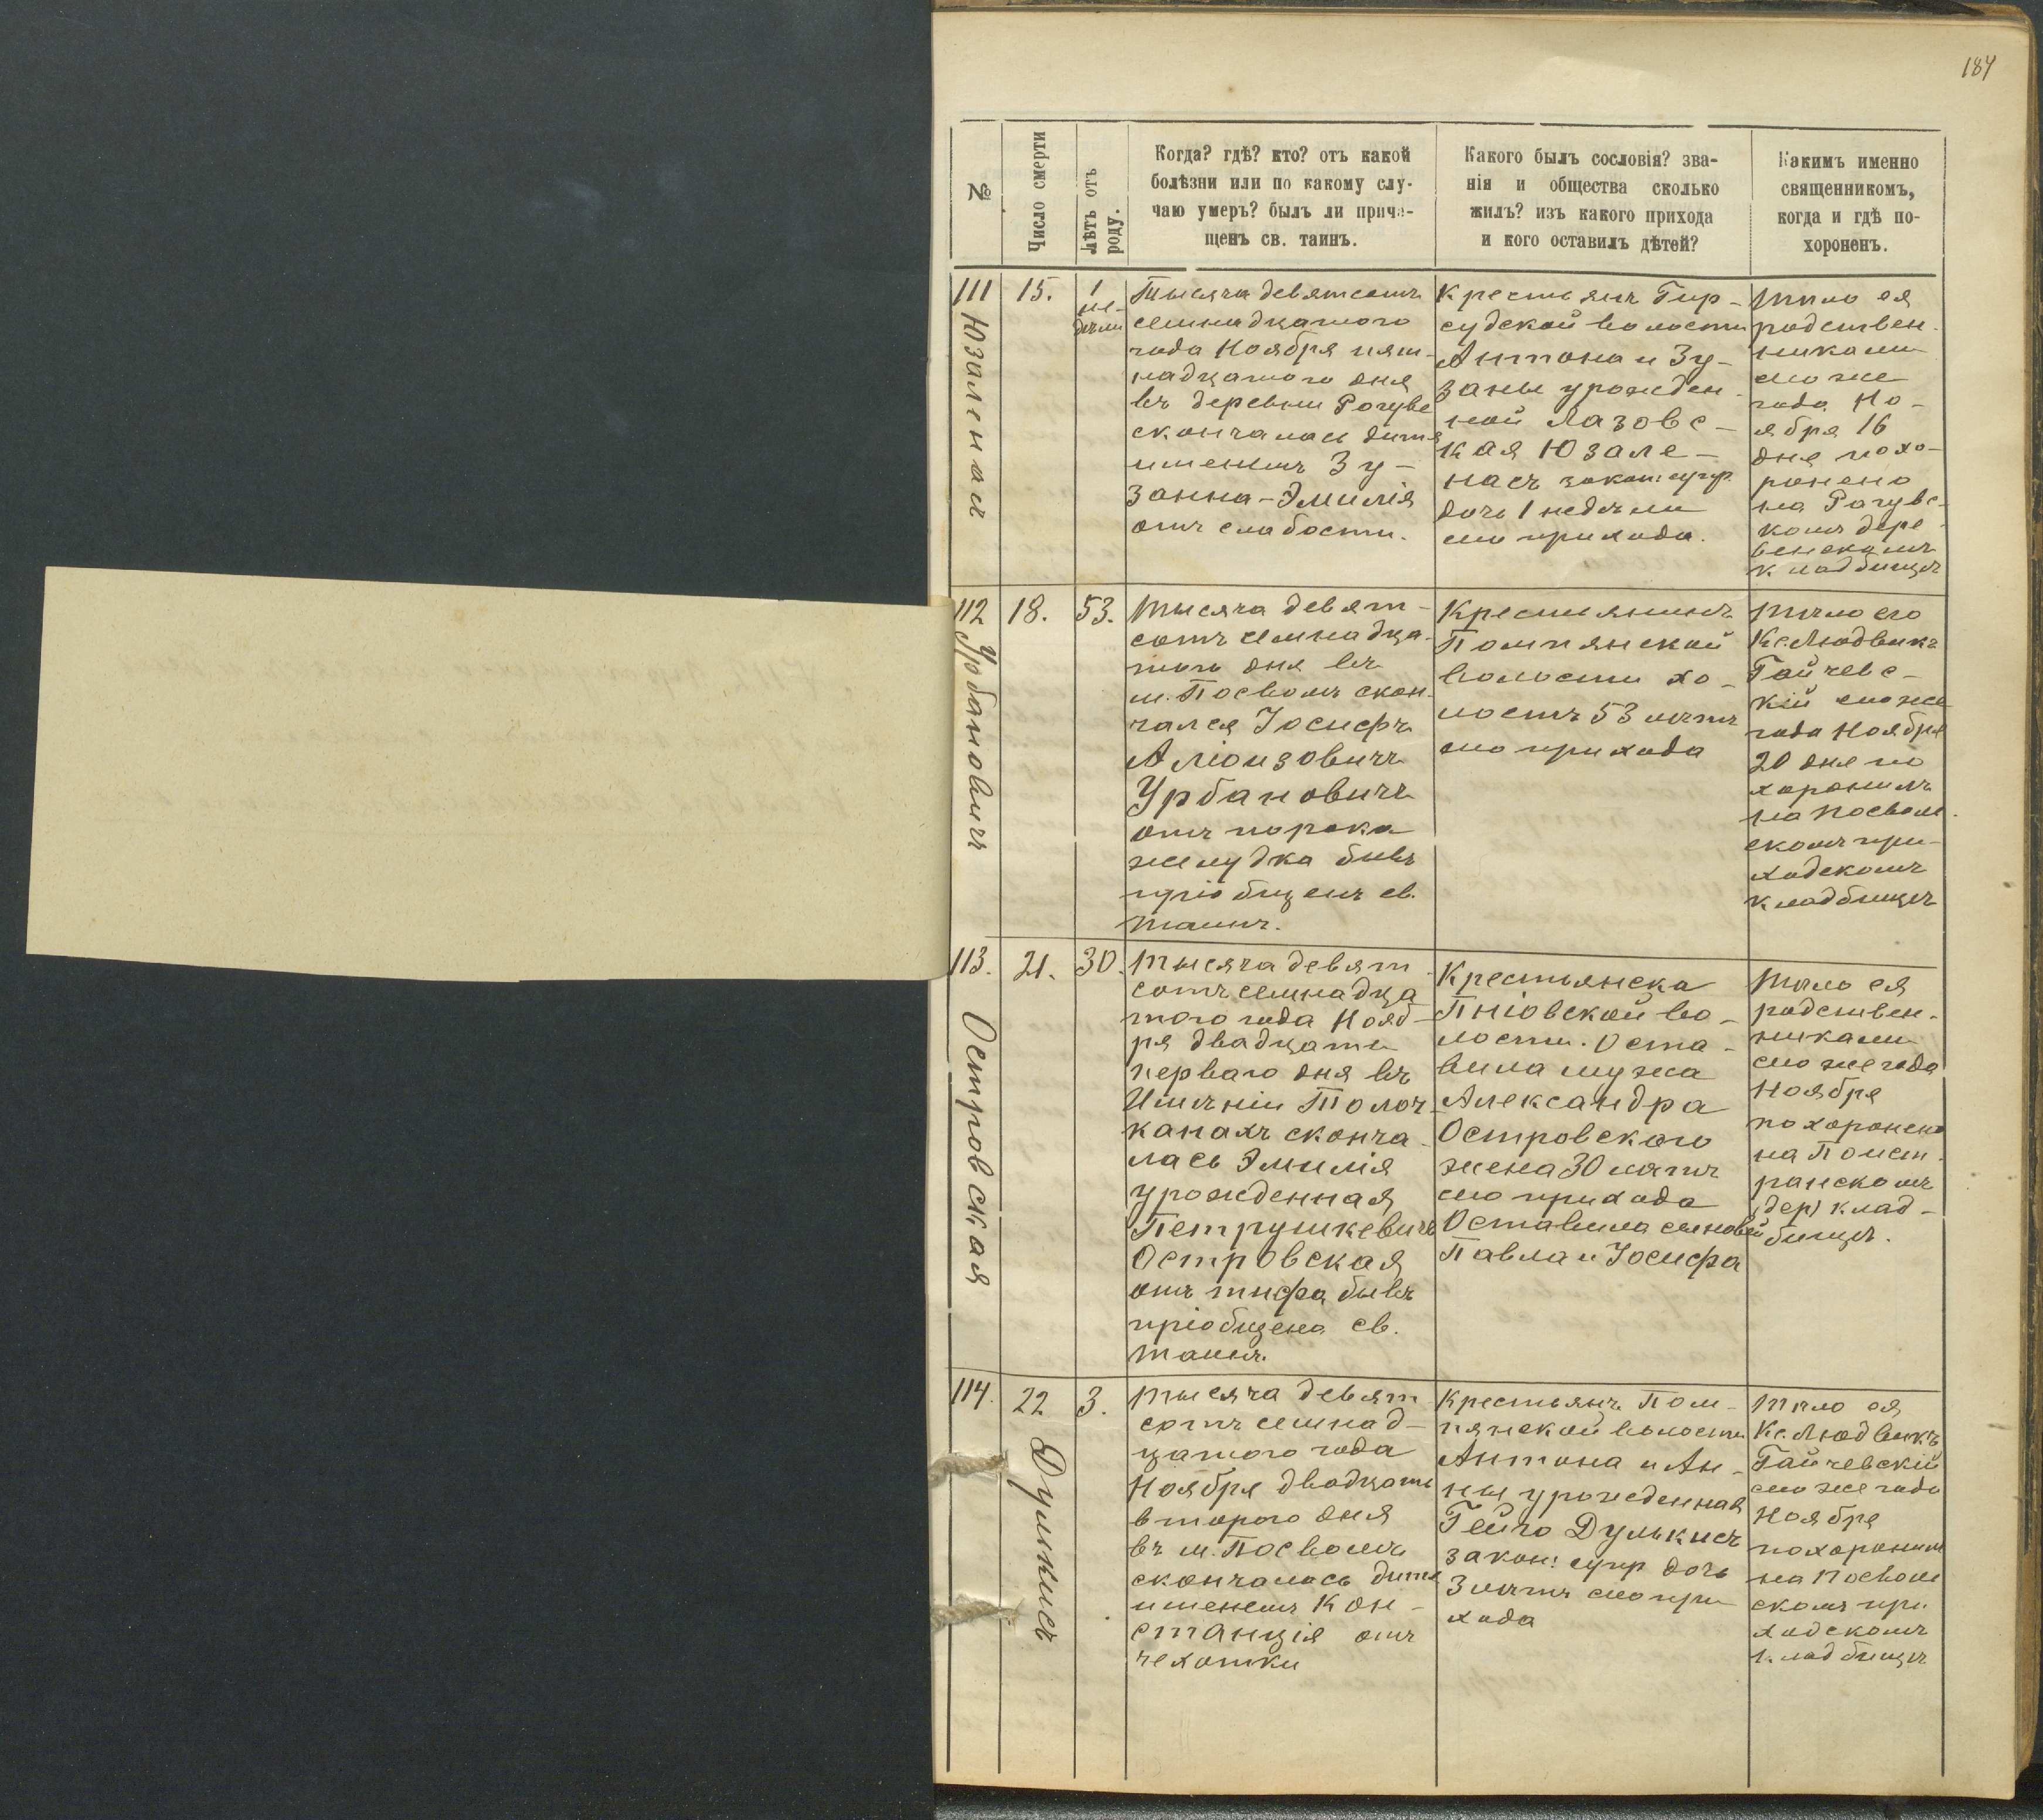 184
№
Число смерти
Лѣтъ отъ
роду.
Когда? гдѣ? кто? отъ какой
болѣзни или по какому слу-
чаю умеръ? былъ ли прича-
щенъ св. таинъ.
Какого былъ сословія? зва-
нія и общества сколько
жилъ? изъ какого прихода
и кого оставилъ дѣтей?
Какимъ именно
священникомъ,
когда и гдѣ по-
хороненъ.
111
Юзаленас
15.
1
не-
дѣли
Тысяча девятсотъ
семнадцатого
года Ноября пят-
надцатого дня
въ деревни Рогуве
скончалось дитя
именемъ Зу-
занна-Эмилія
отъ слабости.
Крестьянъ Гир-
судской волости
Антона и Зу-
заны урожден-
ной Лазовс-
кая Юзале-
насъ закон: супр.
дочь 1 недѣли
сего прихода.
Тѣло ея
родствен-
никами
сего же
года Но-
ября 16
дня похо-
ронено
на Рогувс-
комъ дере-
венскомъ
кладбищѣ
112
Урбановичъ
18.
53.
Тысяча девят-
сотъ семнадца-
того дня въ
м. Посволь скон-
чался Іосифъ
Аліоизовичъ
Урбановичъ
отъ порока
желудка бывъ
пріобщенъ св.
таинъ.
Крестьянинъ
Помпянской
волости хо-
лостъ 53 лѣтъ
сего прихода
Тѣло его
Кс. Людвикъ
Гайчевс-
кій сего же
года Ноября
20 дня по
хоронилъ
на Посволь-
скомъ при-
ходскомъ
кладбищѣ
113.
Островская
21.
30.
Тысяча девят
сотъ семнадца
того года Нояб-
ря двадцати
перваго дня въ
Имѣніи Полоч-
канахъ сконча-
лась Эмилія
урожденная
Петрушкевичъ
Островская
отъ тифа бывъ
пріобщена св.
таинъ.
Крестьянска
Пніовской во-
лости. Оста-
вила мужа
Александра
Островского
жена 30 лѣтъ
сего прихода
Оставила сыновей
Павла и Іосифа
Тѣло ея
родствен-
никами
сего же года
Ноября
похоронено
на Поист-
ранскомъ
(дер) клад-
бищѣ.
114.
Дулькисъ
22
3.
Тысяча девят
сотъ семнад-
цатого года
Ноября двадцать
второго дня
въ м. Посволь
скончалось дитя
именемъ Кон-
станція отъ
чехотки
Крестьянъ Пом-
пянской волости
Антона и Ан-
ны урожденная
Гейго Дулькисъ
закон: супр дочь
3 лѣтъ сего при
хода
Тѣло ея
Кс. Людвикъ
Гайчевскій
сего же года
Ноября
похоронилъ
на Посволь
скомъ при
ходскомъ
кладбищѣ